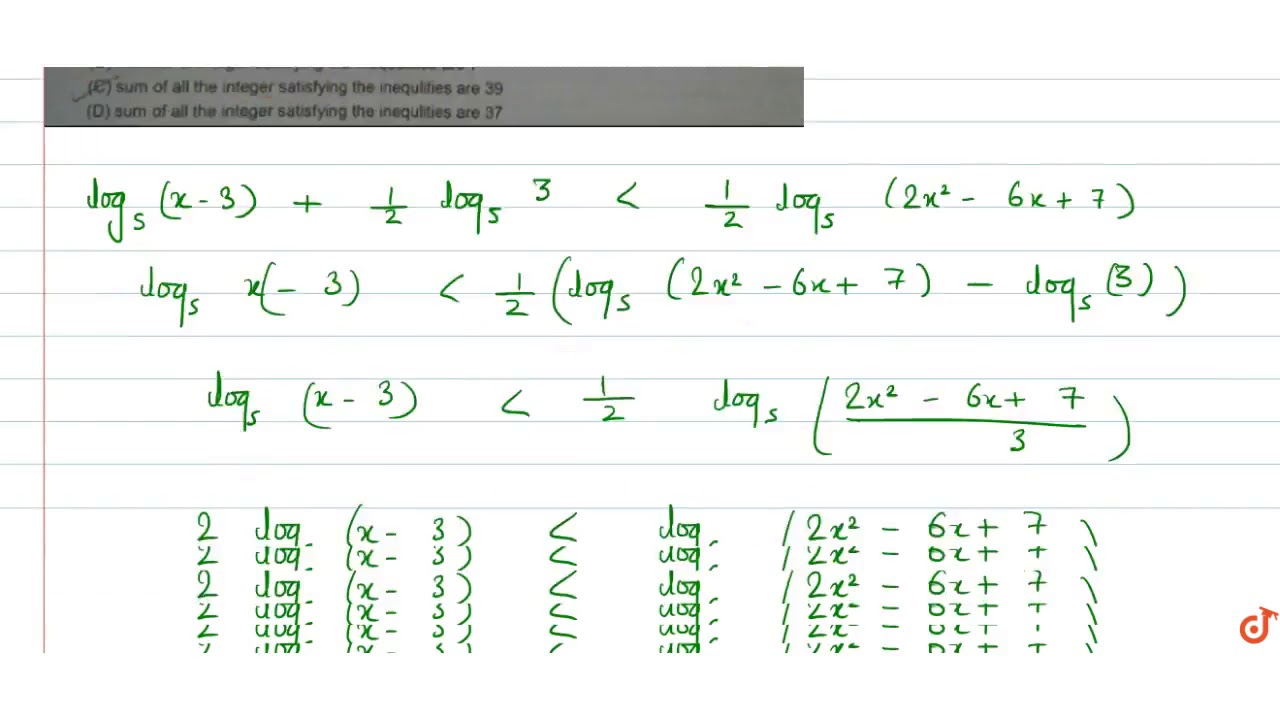 (C) sum of all the integer satisfying the inequlities are 39
(D) sum of all the integer satisfying the inequlities are 37
log₅ (x - 3) + 1/2 log₅ 3 < 1/2 log₅ (2x² - 6x + 7)
log₅ x(- 3) < 1/2 (log₅ (2x² - 6x + 7) - log₅ (3))
log₅ (x - 3) < 1/2 log₅ ((2x² - 6x + 7)/3)
2 log (x - 3) < log (2x² - 6x + 7)
2 log (x - 3) < log (2x² - 6x + 7)